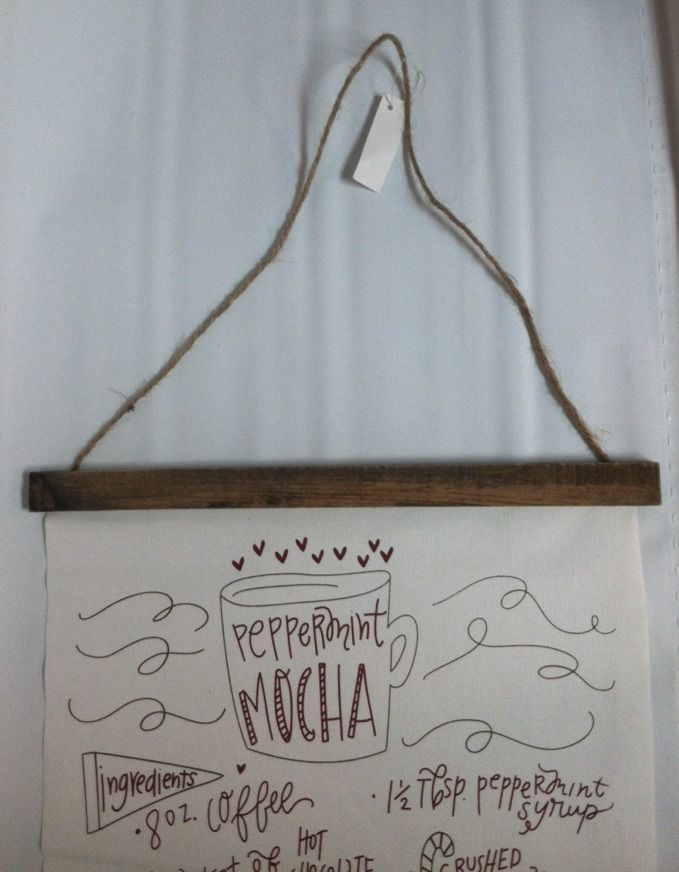 PEPPERMINT
MOCHA
ingredients
• 8 oz. coffee
• 1 1/2 Tbsp. peppermint
syrup
HOT
CRUSHED